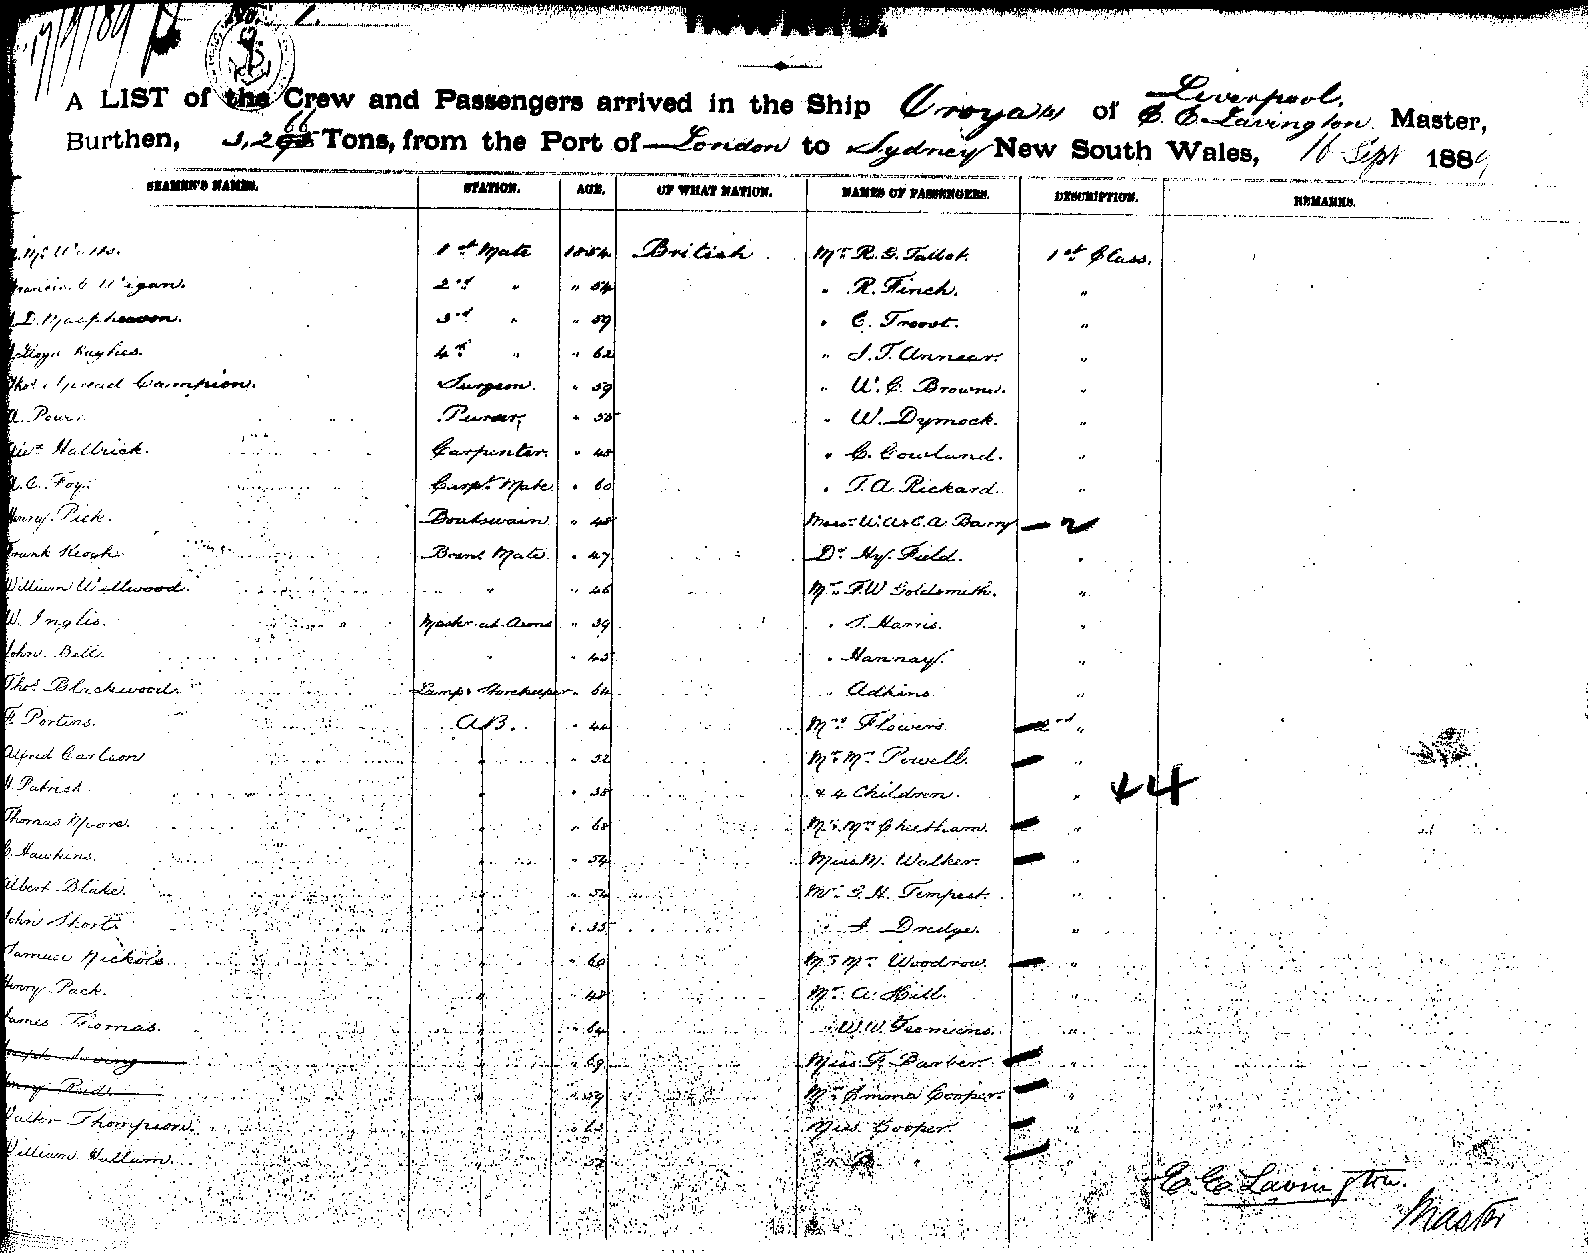 17/9/89
No. 1.
INWARD.
A LIST of the Crew and Passengers arrived in the Ship Oroya of Liverpool.
E. E. Lavington Master,
Burthen, Tons, from the Port of London to Sydney New South Wales, 16 Sept 1889
SEAMEN'S NAMES. STATION. AGE. OF WHAT NATION. NAMES OF PASSENGERS. DESCRIPTION. REMARKS.
1st Mate 1854 British Mr R. G. Talbot. 1st Class.
Francis C Wigan. 2nd " " 54 " R. Finch. "
D. Macpherson. 3rd " " 59 "
Lloyd Hughes. 4th " " 62 " J. T. Annear. "
Thos Spread Campion. Surgeon. " 59 " W. C. Browne. "
Purser, " W. Dymock. "
Carpenter. " C. Cowland. "
A. C. Foy. Carp. Mate " 60 " T. A. Rickard. "
Henry Pick. Boatswain " 48 Messrs W. A & C. A Barry — 2
Frank Keogh. Boats Mate. " 47 Dr Hy. Field. "
William Wellwood. " " 46 Mr F. W Goldsmith. "
W. Inglis. Master at Arms " 39 " Harris. "
John Bell. " " " Hannay. "
Thos Blackwood. Lamps Storekeeper " 64 " Adkins "
F. Portins. A.B. " 44 Mrs Flowers 2nd "
Alfred Carlson " " 52 Mr & Mrs Powell. "
Patrick " " & 4 Children. " + 4
Thomas Moore. " " 68 Mr & Mrs Cheetham. "
Hawkins. " " 54 Miss M. Walker. "
Albert Blake. " " Mr G. H. Tempest. "
John Short. " " " J. Dredge. "
" " 60 Mr & Mrs Woodrow. "
Henry Pack. " " 48 Mr A. Hill. "
James Thomas. " " 64 "
Joseph " " 69 Miss F. Barber. "
" " 59 Mrs Emma Cooper. "
Walter Thompson. " " Miss Cooper. "
William Hallam. " " "
E. E. Lavington.
Master